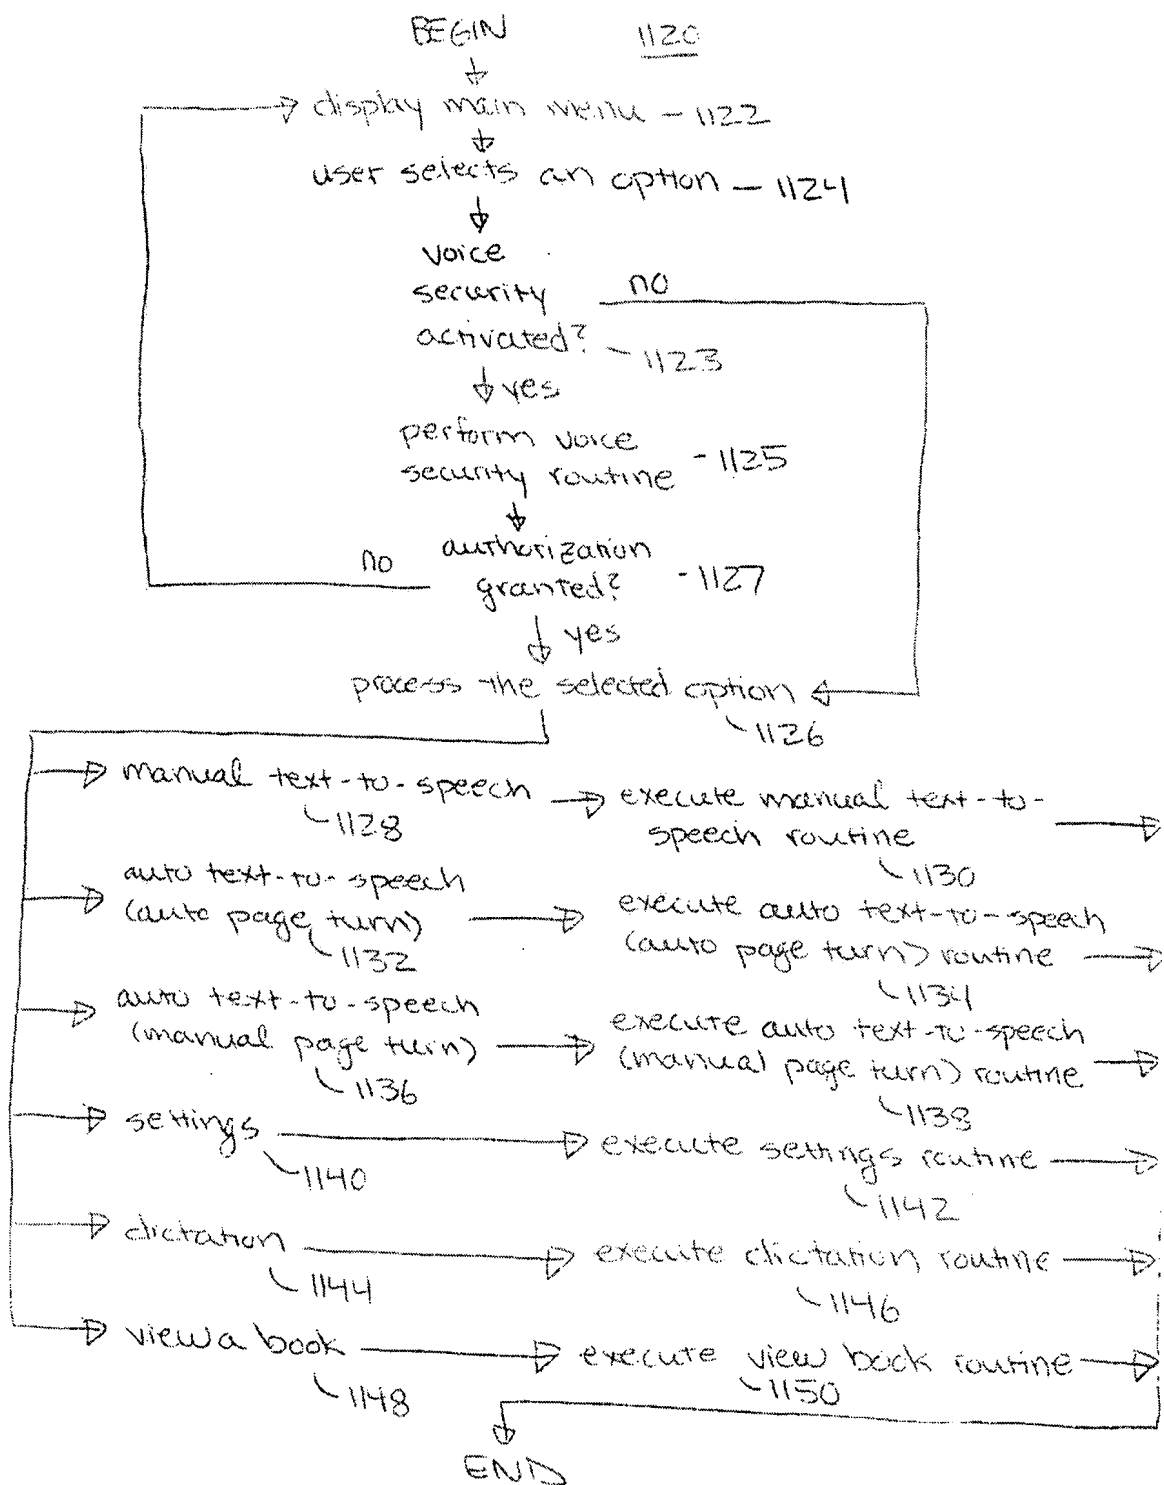 BEGIN 1120
display main menu - 1122
user selects an option - 1124
voice
security no
activated? - 1123
yes
perform voice
security routine - 1125
no authorization
granted? - 1127
yes
process the selected option
1126
manual text-to-speech
1128
execute manual text-to-
speech routine
1130
auto text-to-speech
(auto page turn)
1132
execute auto text-to-speech
(auto page turn) routine
1134
auto text-to-speech
(manual page turn)
1136
execute auto text-to-speech
(manual page turn) routine
1138
settings
1140
execute settings routine
1142
dictation
1144
execute dictation routine
1146
view a book
1148
execute view book routine
1150
END